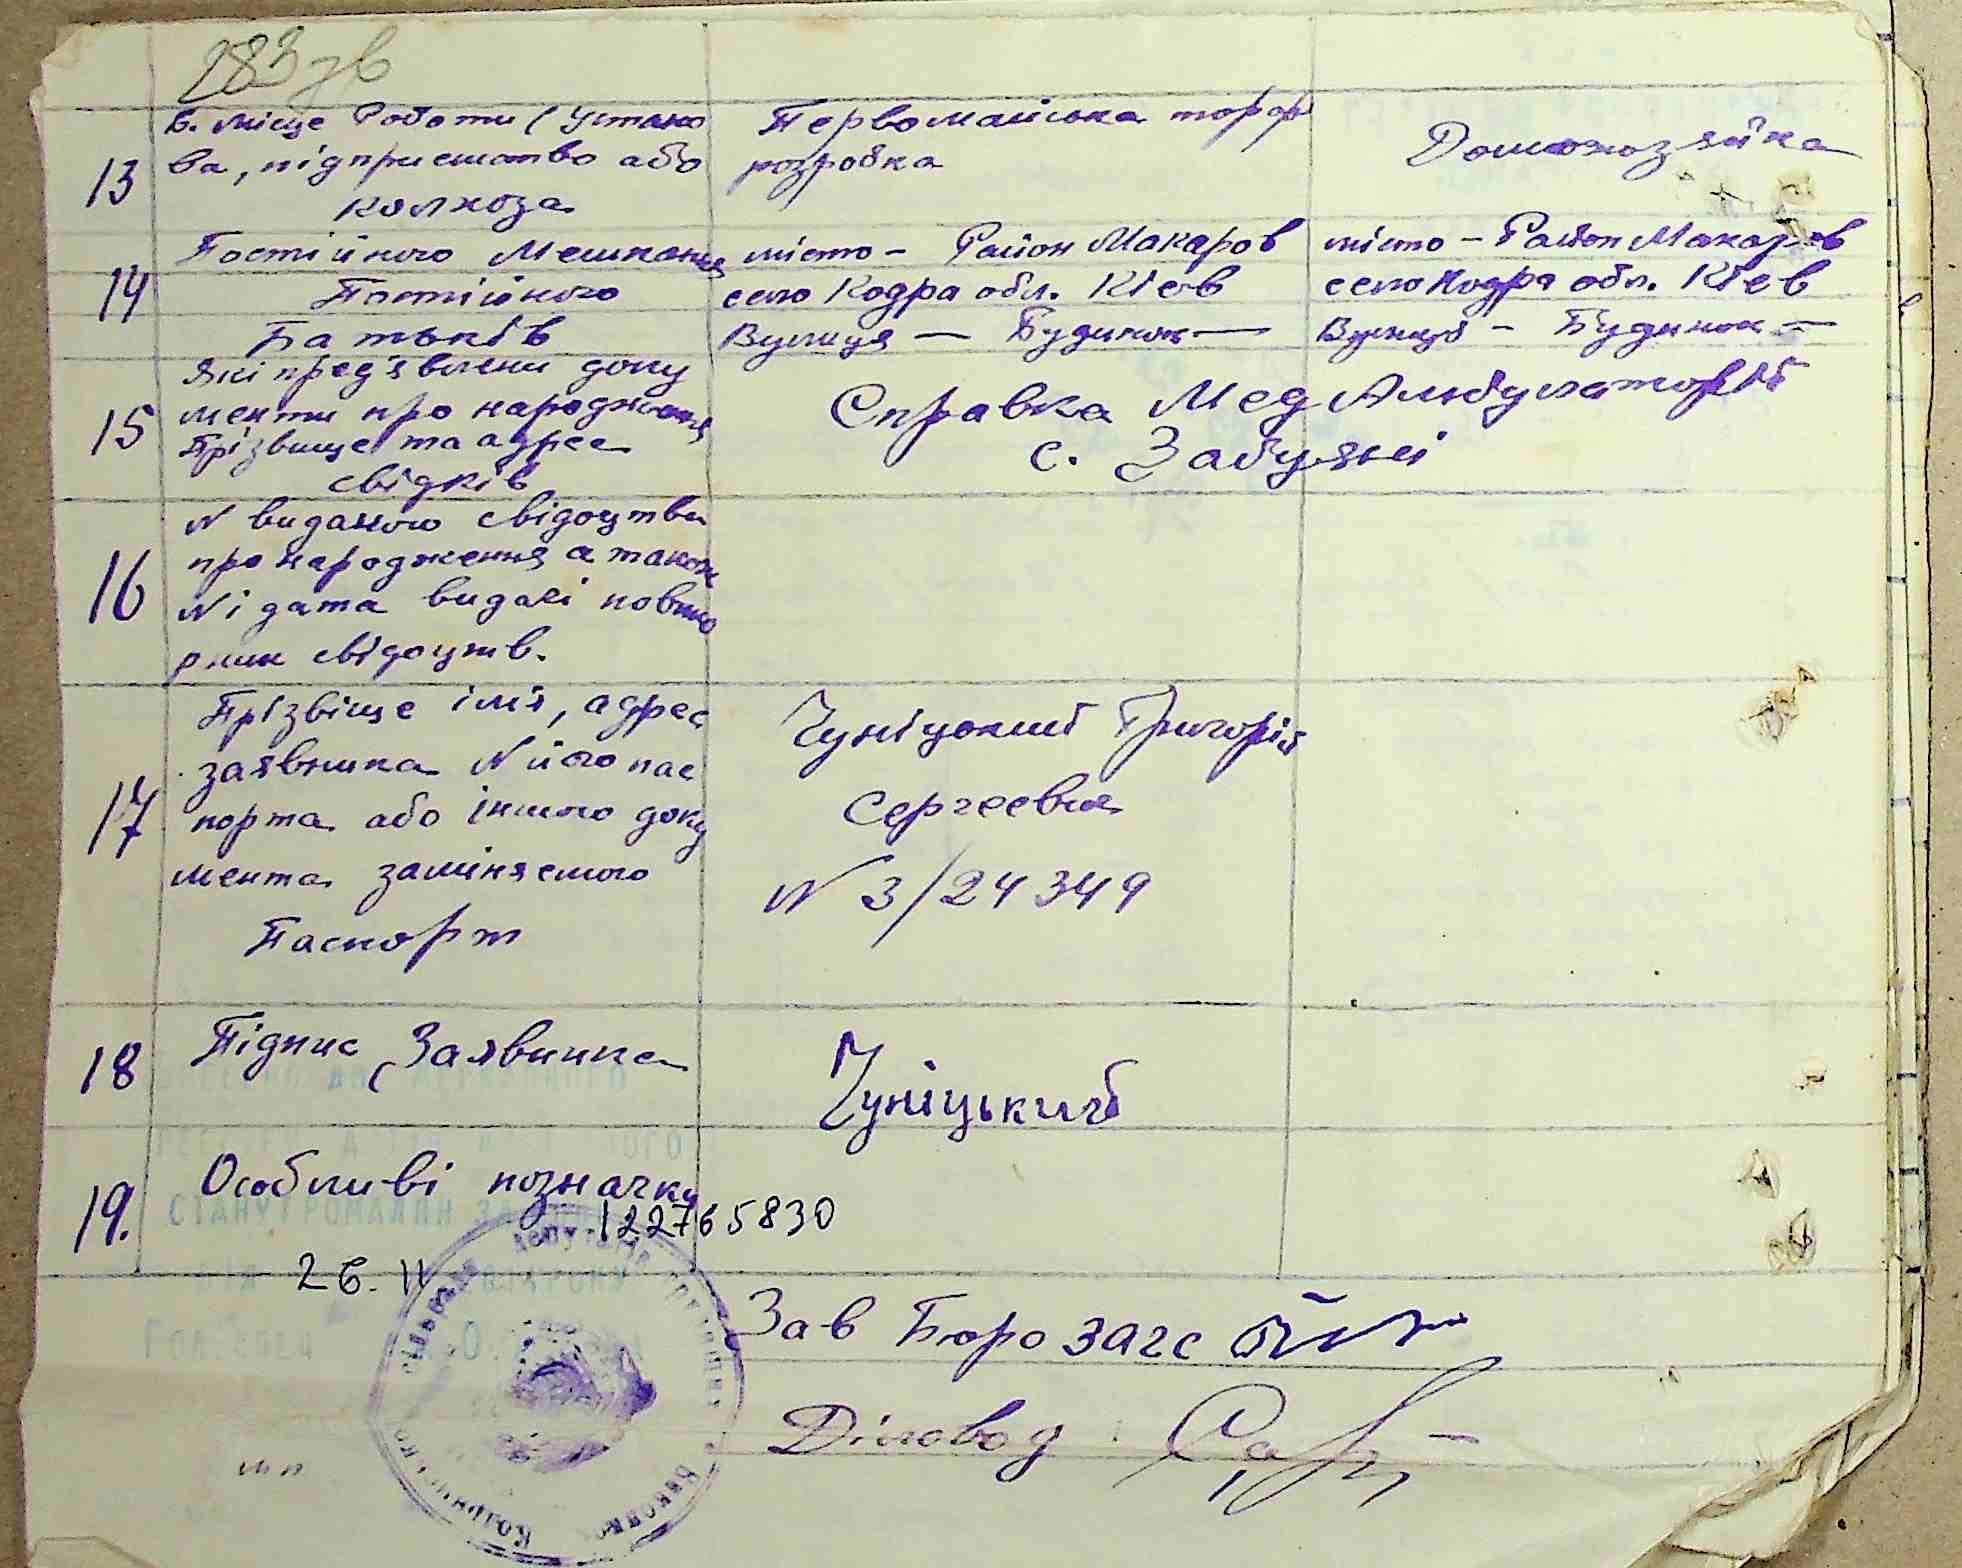 283 зв
13
в. місце Роботи (Устано
ва, підприємство або
колхоза
Первомайська торф
розробка
Домохозяйка
14
Постійного Мешкання
Постійного
Батьків
місто - Район Макаров
село Кодра обл. Кіев
Вулиця — Будинок —
місто - Район Макаров
село Кодра обл. Кіев
Вулиця - Будинок —
15
Які пред'явлени доку
менти про народження
Прізвище та адрес
свідків
Справка Мед Амбулаторії
с. Забуяні
16
N виданого свідоцтва
про народження а також
N і дата видачі повто
рних свідоцтв.
17
Прізвіще імя, адрес
заявника N його пас
порта або іншого доку
мента заміняємого
Паспорт
Чуніцький Григорій
Сергеевич
N 3/24349
18
Підпис Заявника
Чуніцький
19.
Особливі позначки
122765830
26. II
СТАНУ ГРОМАДЯН
Зав Бюро загс
Діловод
мп